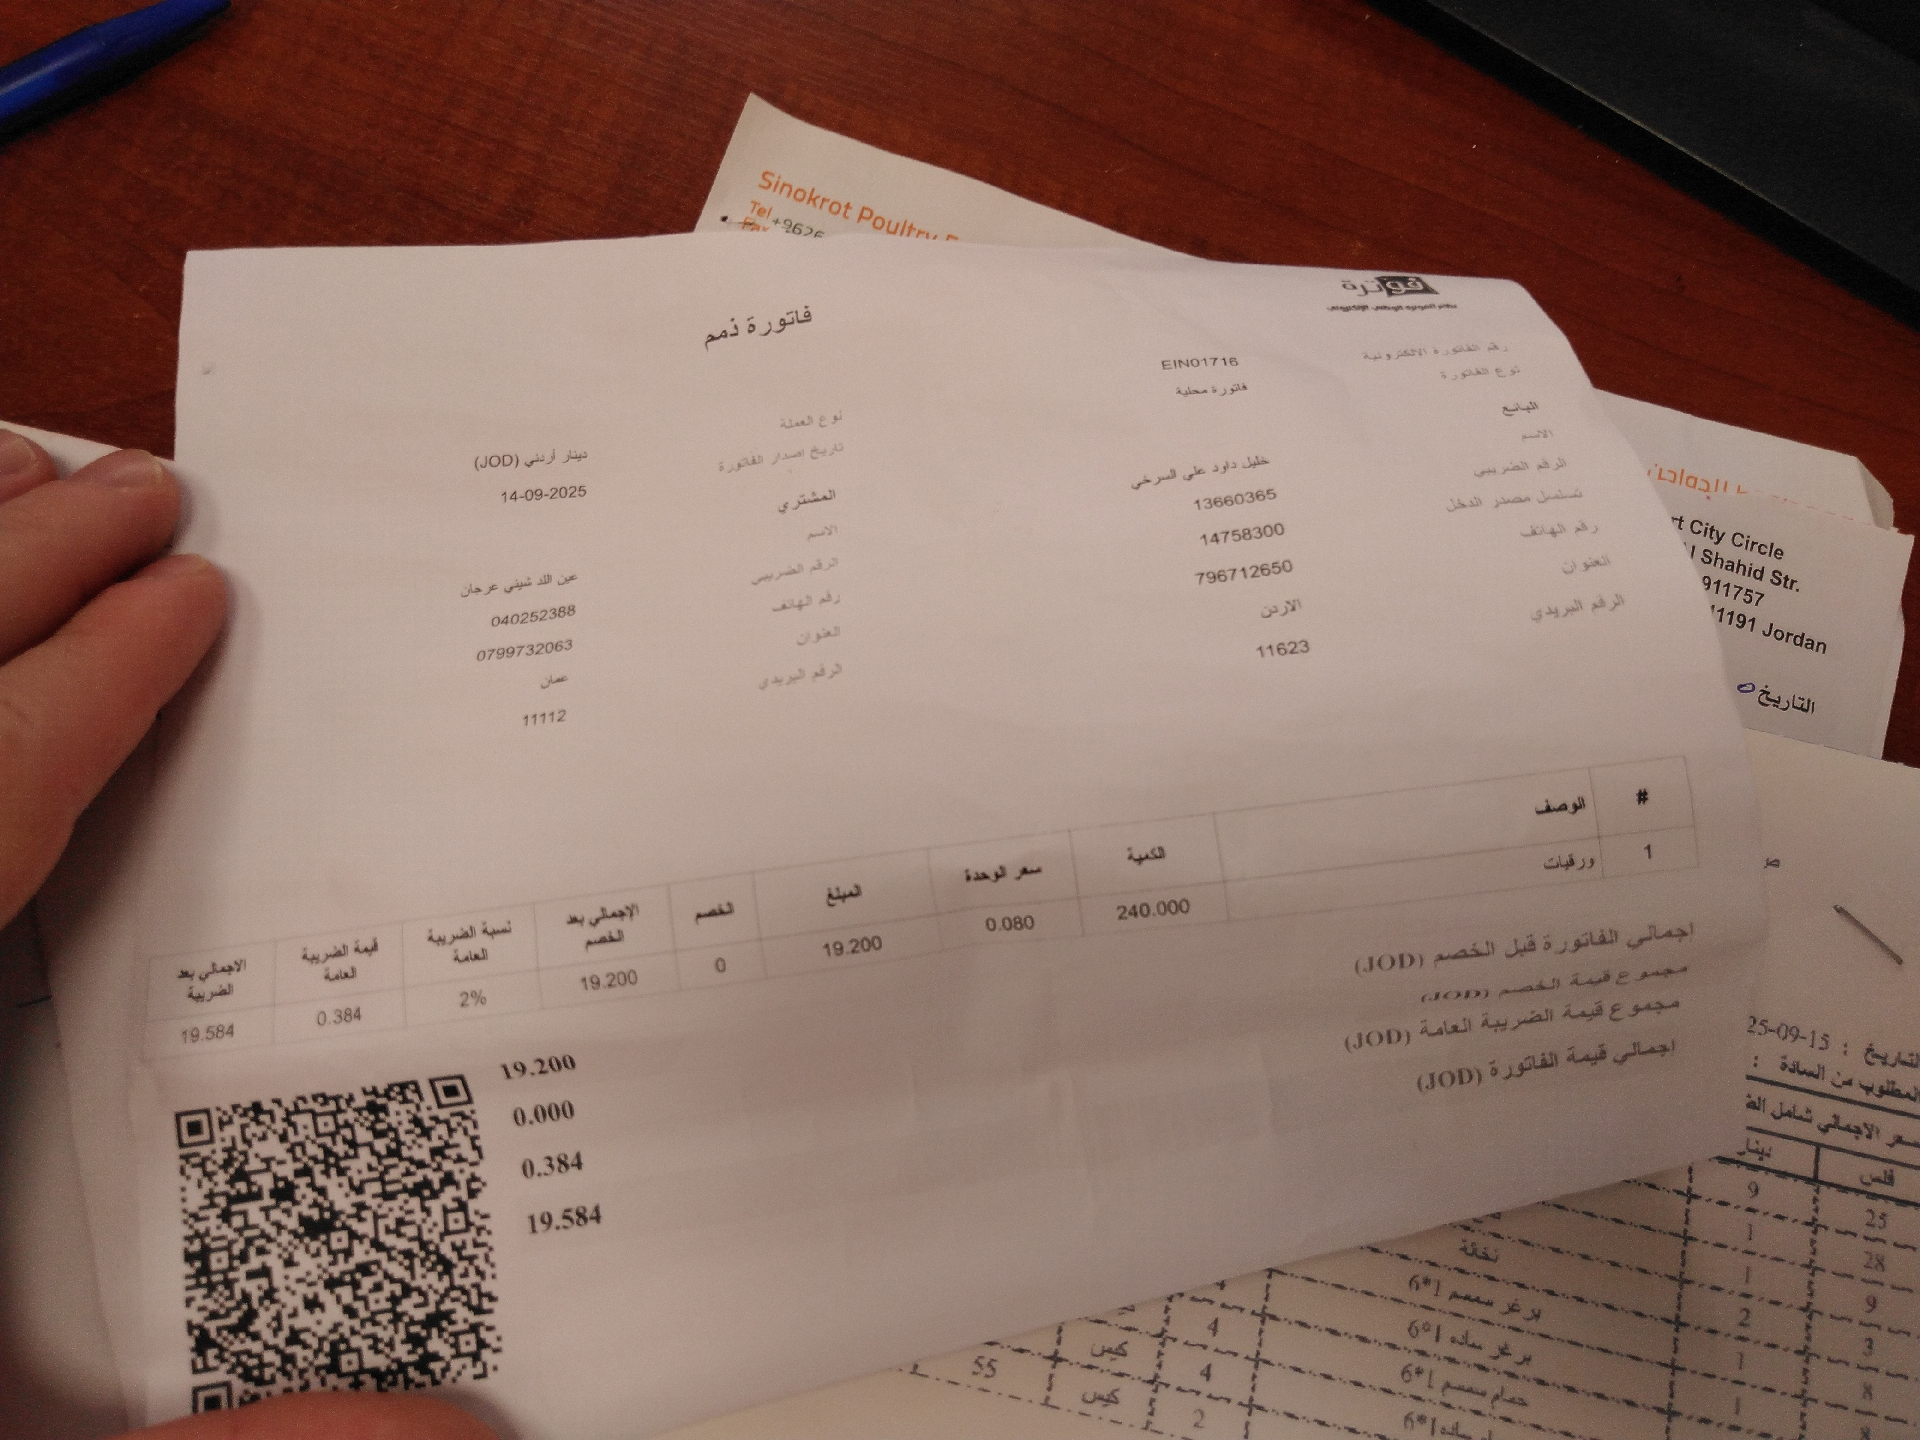 Sinokrot Poultry
Tel +9626
Fax
فوترة
فاتورة ذمم
رقم الفاتورة الالكترونية EIN01716
نوع الفاتورة فاتورة محلية
البائع
الاسم خليل داود علي السرخي
الرقم الضريبي 13660365
تسلسل مصدر الدخل 14758300
رقم الهاتف 796712650
العنوان الاردن
الرقم البريدي 11623
نوع العملة دينار أردني (JOD)
تاريخ اصدار الفاتورة 14-09-2025
المشتري
الاسم عرجان
الرقم الضريبي 040252388
رقم الهاتف 0799732063
العنوان عمان
الرقم البريدي 11112
# الوصف الكمية سعر الوحدة المبلغ الخصم الإجمالي بعد الخصم نسبة الضريبة العامة قيمة الضريبة العامة الاجمالي بعد الضريبة
1 ورقيات 240.000 0.080 19.200 0 19.200 2% 0.384 19.584
اجمالي الفاتورة قبل الخصم (JOD) 19.200
مجموع قيمة الخصم (JOD) 0.000
مجموع قيمة الضريبة العامة (JOD) 0.384
اجمالي قيمة الفاتورة (JOD) 19.584
City Circle
Shahid Str.
911757
11191 Jordan
التاريخ
التاريخ : 25-09-15
المطلوب من السادة :
سعر الاجمالي شامل
فلس دينار
25 9
28 1
نخالة
9 1
برغر سمسم 1*6
3 2
برغر ساده 1*6 4
8 1
حمام سمسم 1*6 4 كيس
1
ساده 1*6 2 كيس 55